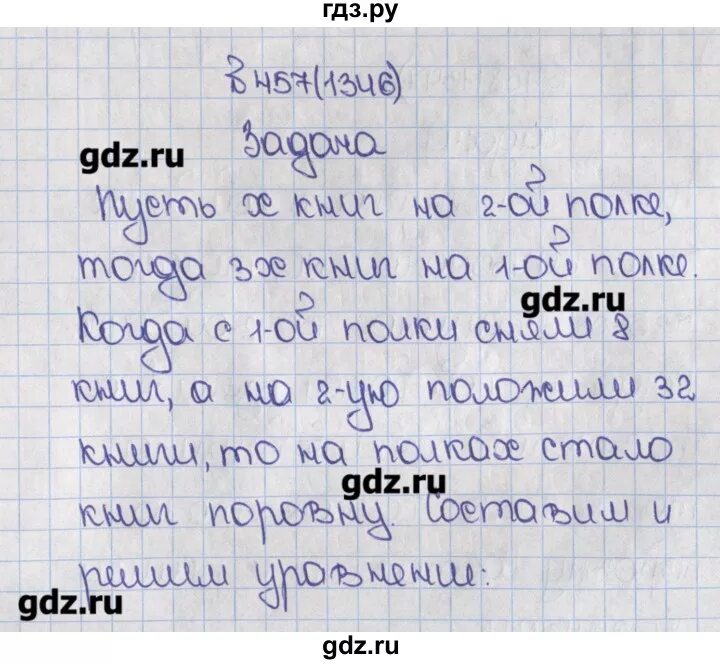 гдз.ру
В 457(1346)
Задача
gdz.ru
Пусть х книг на 2-ой полке,
тогда 3х книг на 1-ой полке.
gdz.ru
Когда с 1-ой полки сняли 8
книг, а на 2-ую положили 32
книги, то на полках стало
gdz.ru
книг поровну. Составим и
решим уравнение:
gdz.ru
gdz.ru